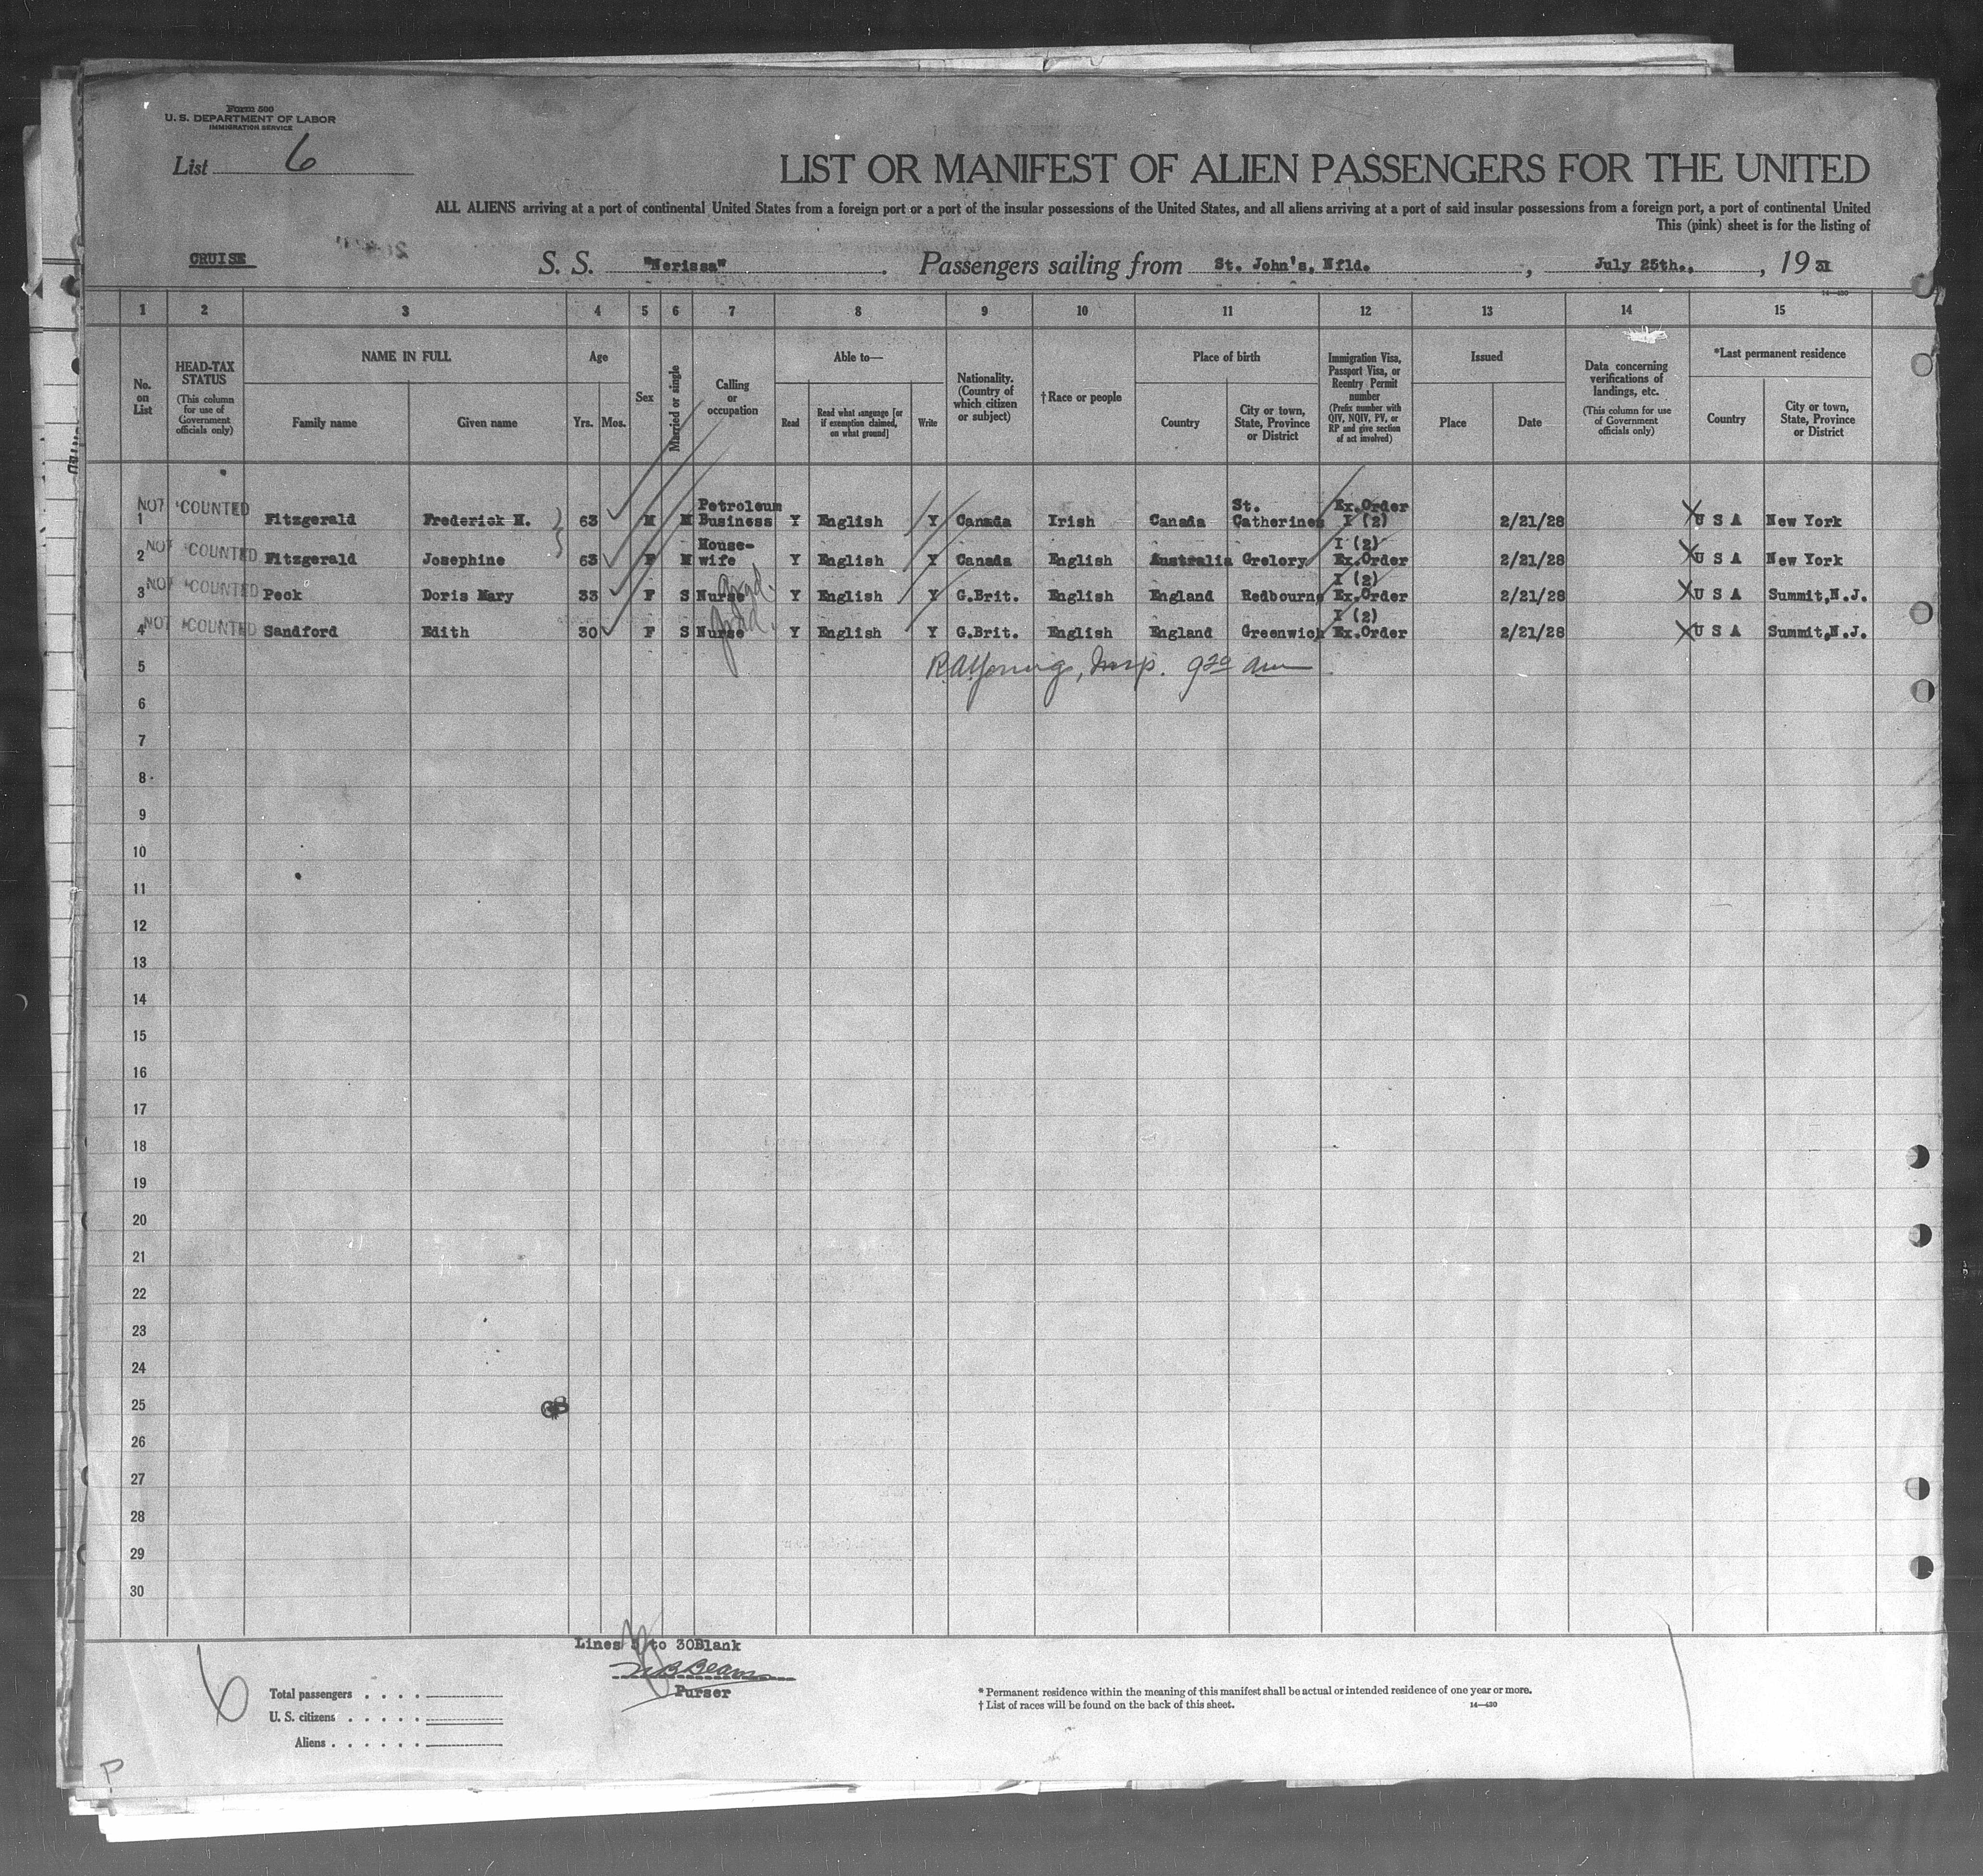 Form 500
U. S. DEPARTMENT OF LABOR
IMMIGRATION SERVICE
List 6
LIST OR MANIFEST OF ALIEN PASSENGERS FOR THE UNITED
ALL ALIENS arriving at a port of continental United States from a foreign port or a port of the insular possessions of the United States, and all aliens arriving at a port of said insular possessions from a foreign port, a port of continental United
This (pink) sheet is for the listing of
CRUISE S. S. "Nerissa". Passengers sailing from St. John's, Nfld., July 25th., 19 31
14—430
1 2 3 4 5 6 7 8 9 10 11 12 13 14 15
No. on List
HEAD-TAX STATUS (This column for use of Government officials only)
NAME IN FULL Family name Given name
Age Yrs. Mos.
Sex
Married or single
Calling or occupation
Able to— Read Read what language [or if exemption claimed, on what ground] Write
Nationality. (Country of which citizen or subject)
†Race or people
Place of birth Country City or town, State, Province or District
Immigration Visa, Passport Visa, or Reentry Permit number (Prefix number with QIV, NQIV, PV, or RP and give section of act involved)
Issued Place Date
Data concerning verifications of landings, etc. (This column for use of Government officials only)
*Last permanent residence Country City or town, State, Province or District
1 NOT COUNTED Fitzgerald Frederick H. 63 M M Petroleum Business Y English Y Canada Irish Canada St. Catherines Ex.Order I (2) 2/21/28 X U S A New York
2 NOT COUNTED Fitzgerald Josephine 63 F M House-wife Y English Y Canada English Australia Grelory I (2) Ex.Order 2/21/28 X U S A New York
3 NOT COUNTED Peck Doris Mary 33 F S Nurse Y English Y G.Brit. English England Redbourne I (2) Ex.Order 2/21/28 X U S A Summit,N.J.
4 NOT COUNTED Sandford Edith 30 F S Nurse Y English Y G.Brit. English England Greenwich I (2) Ex.Order 2/21/28 X U S A Summit,N.J.
5 R A Young, Insp. 9 20 am
6
7
8
9
10
11
12
13
14
15
16
17
18
19
20
21
22
23
24
25
26
27
28
29
30
Lines 5 to 30Blank
Purser
6
Total passengers
U. S. citizens
Aliens
* Permanent residence within the meaning of this manifest shall be actual or intended residence of one year or more.
† List of races will be found on the back of this sheet.
14—430
P